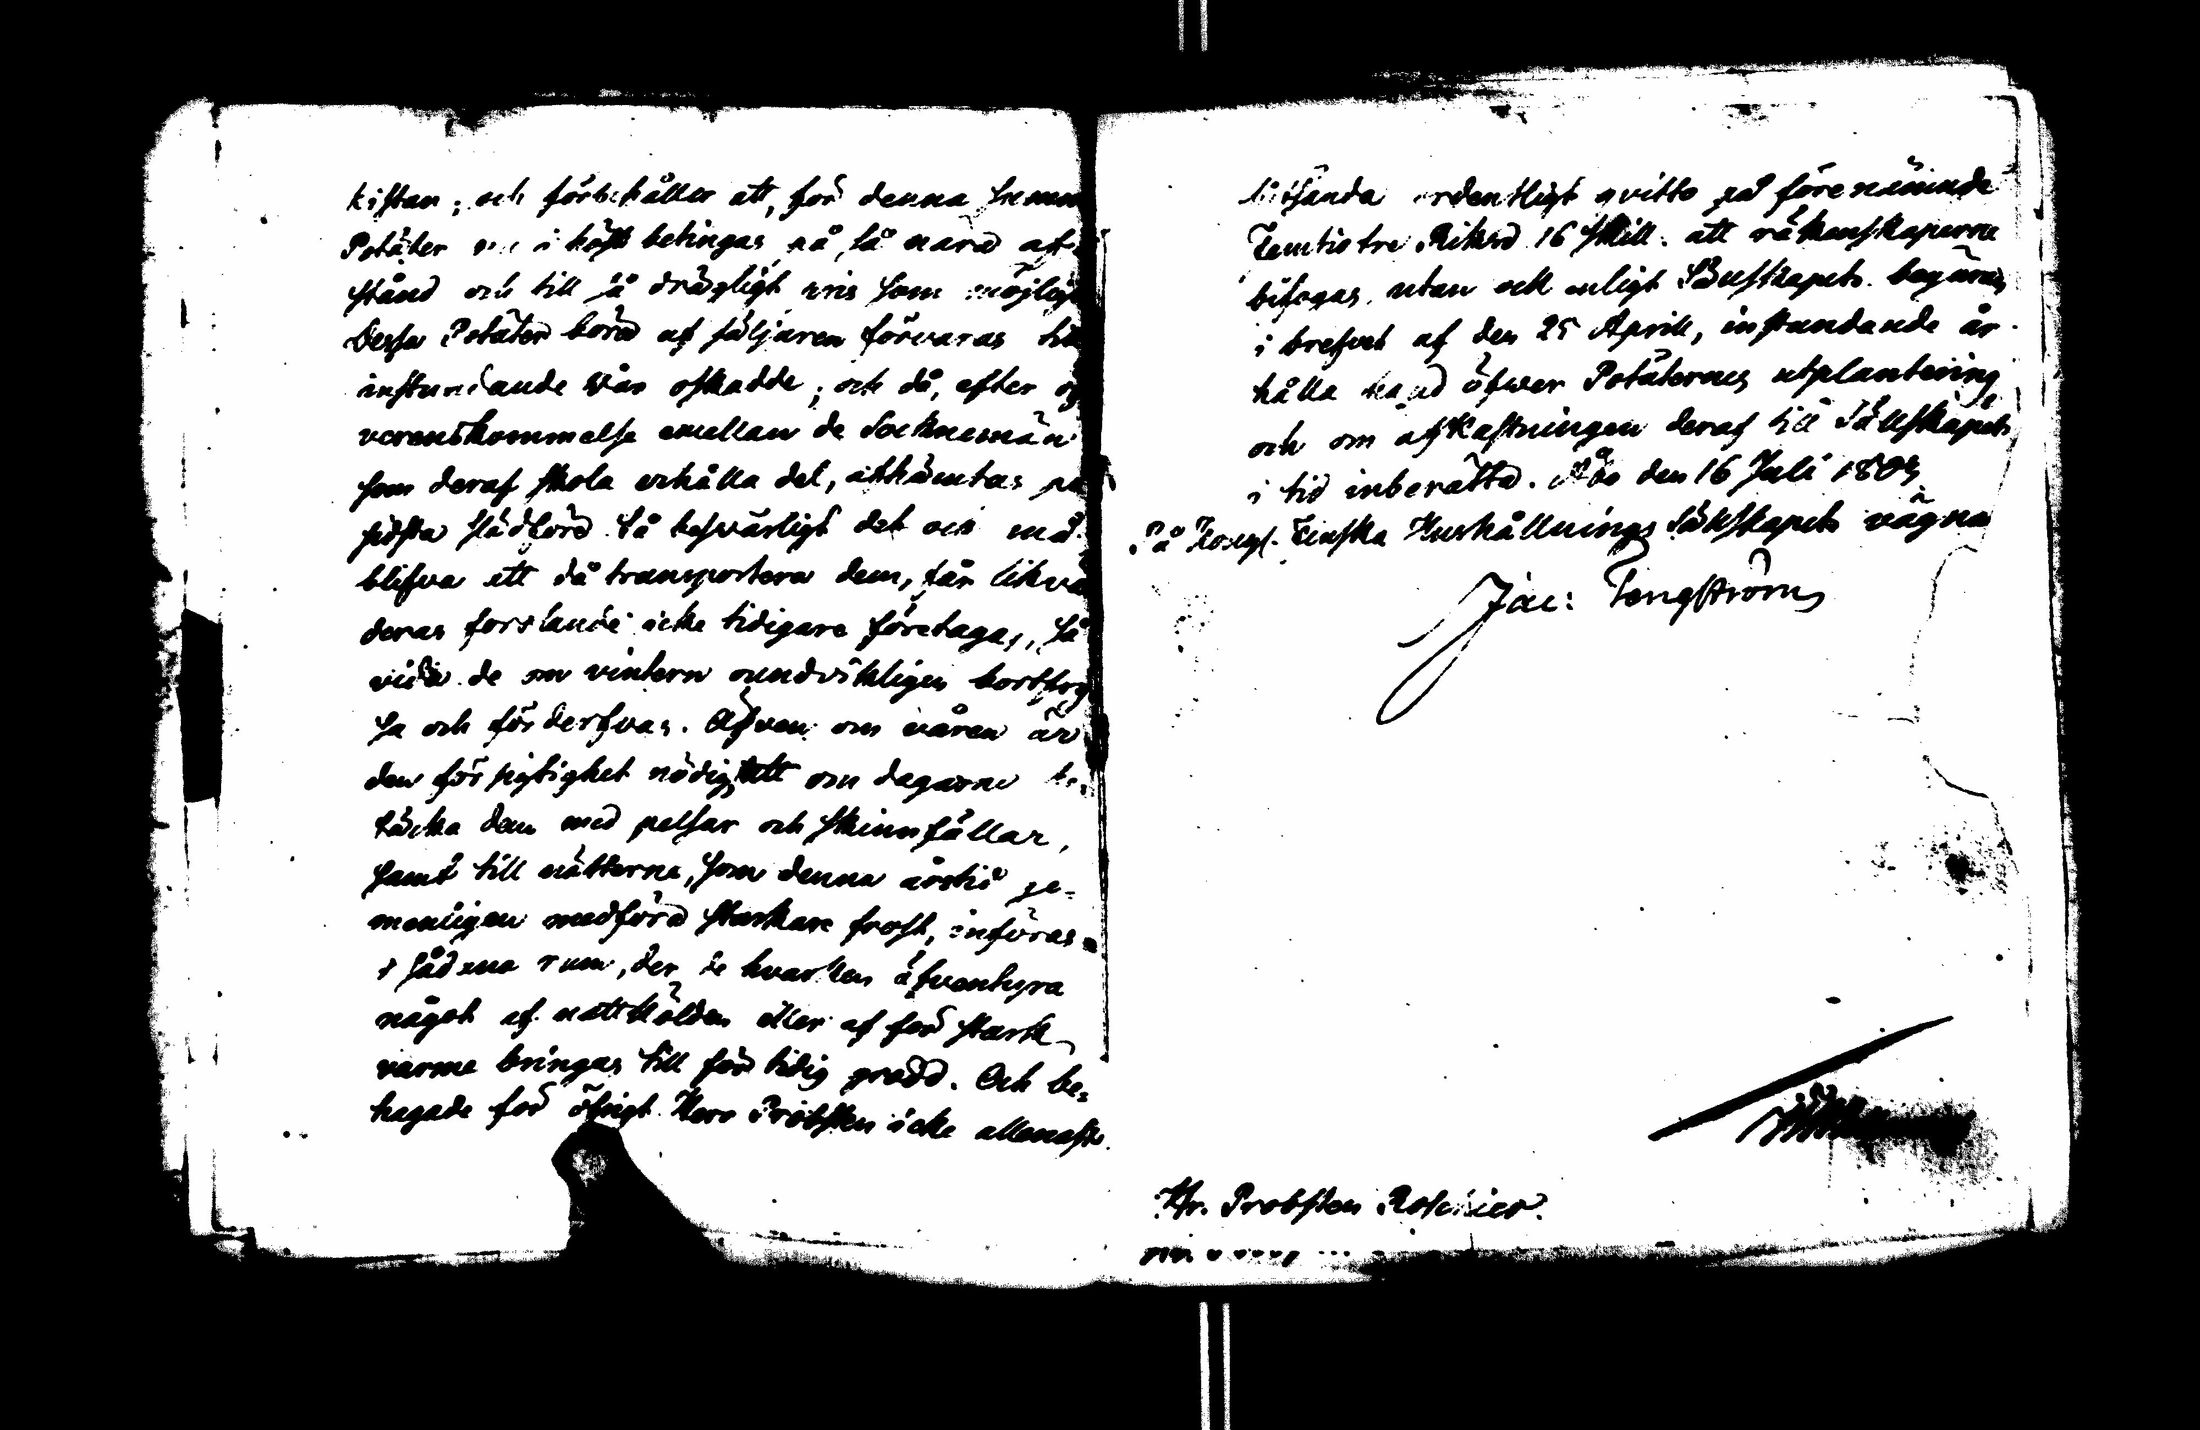 kistan; och förbehåller att, för denna summa
Potäter i höst betingas på så nära af-
stånd och till så drägligt pris som möjligt
Dessa Potäter böra af säljaren förvaras till
instundande Vår oskadde; och då, efter öf-
verenskommelse emellan de Socknemän
som deraf skola erhålla del, afhämtas på
sidsta slädföre. Så besvärligt det ock må
blifva att då transportera dem, får likväl
deras forslande icke tidigare företagas, så
vida de om vintern oundvikligen bortfry-
sa och förderfvas. Äfven om våren är
den försigtighet nödig, att om dagarne be-
täcka dem med pelsar och skinnfällar,
samt till nätterna, som denna årstid ge-
menligen medföra starkare frost, införas
i sådana rum, der de hvarken äfventyra
något af nattkölden eller af för stark
värme bringas till för tidig grodd. Och be-
hagade för öfrigt Herr Probsten icke allenast
insända ordentligt qvitto på förenämnde
Femtiotre Riksd 16 Skill. att räkenskaperne
bifogas, utan ock enligt Sällskapets begäran
i brefvet af den 25 April, instundande år
hålla hand öfver Potäternes utplantering
och om afkastningen deraf till Sällskapet
i tid inberätta. Åbo den 16 Juli 1805
På Kongl. Finska Hushållnings Sällskapets vägnar
Jac: Tengström
Hr. Probsten